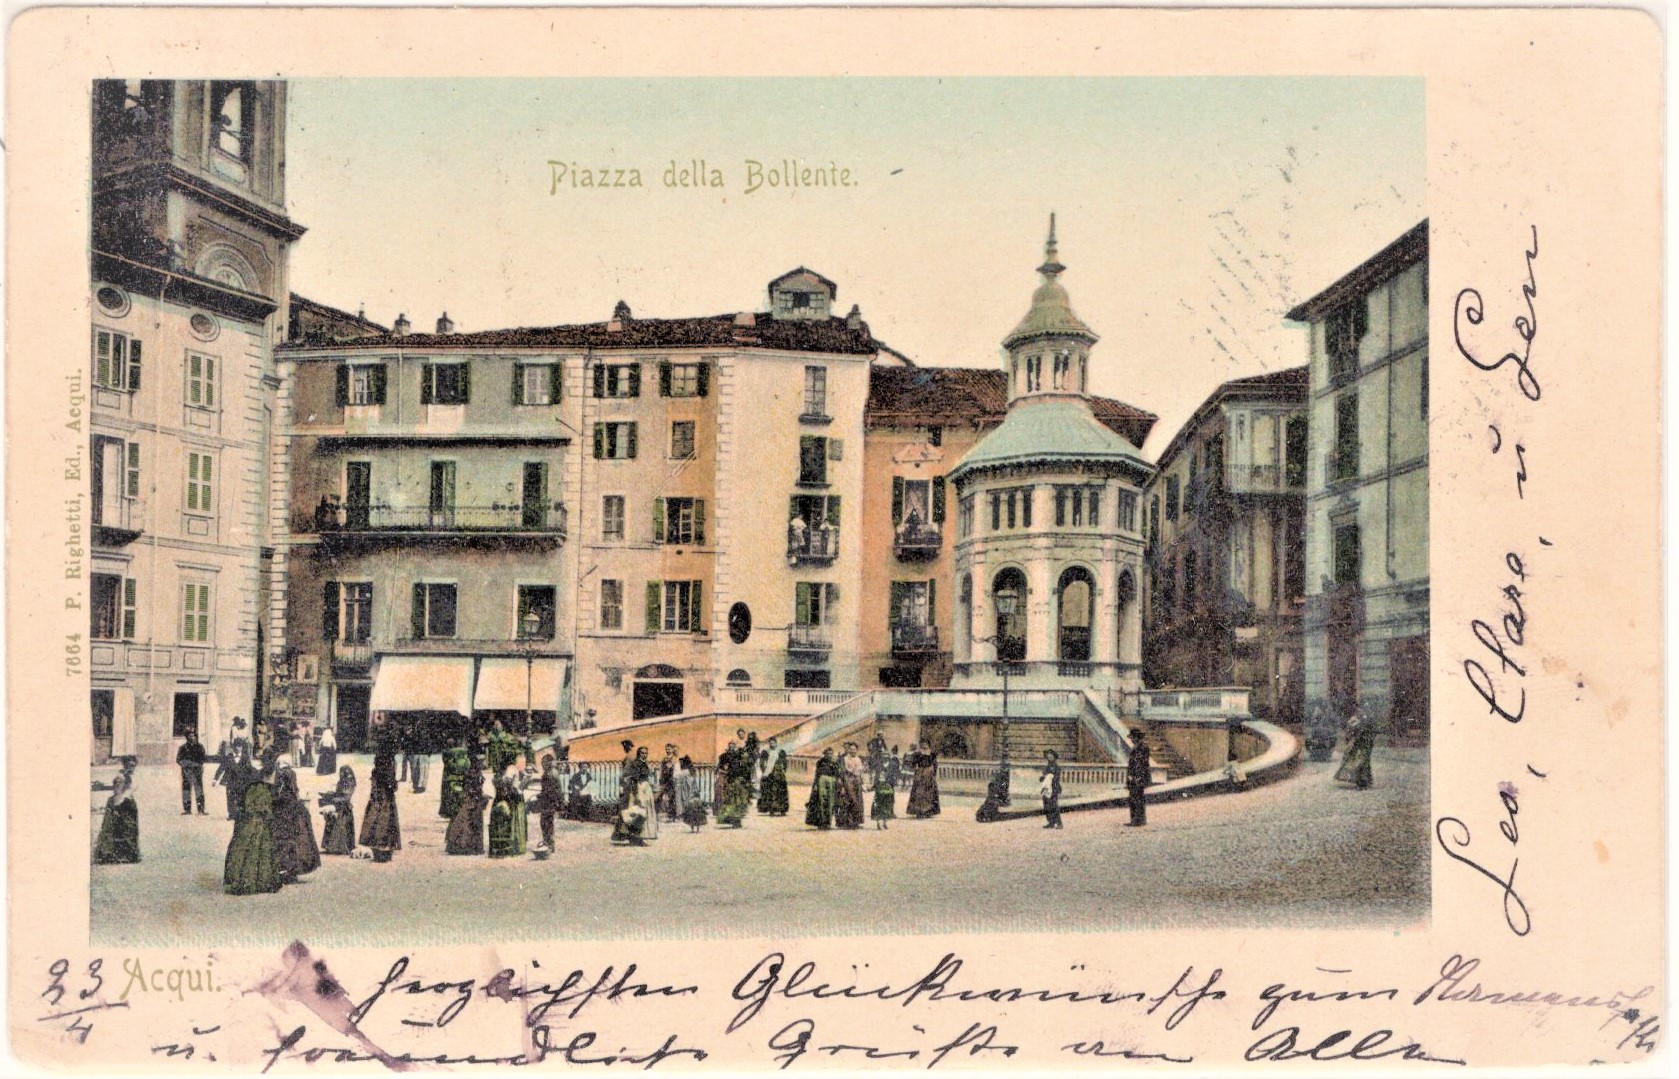 Piazza della Bollente.
7664 P. Righetti, Ed., Acqui.
Acqui.
23/4
die herzlichsten Glückwünsche zum
u. freundliche Grüße an Alle
Leo, Clara, u